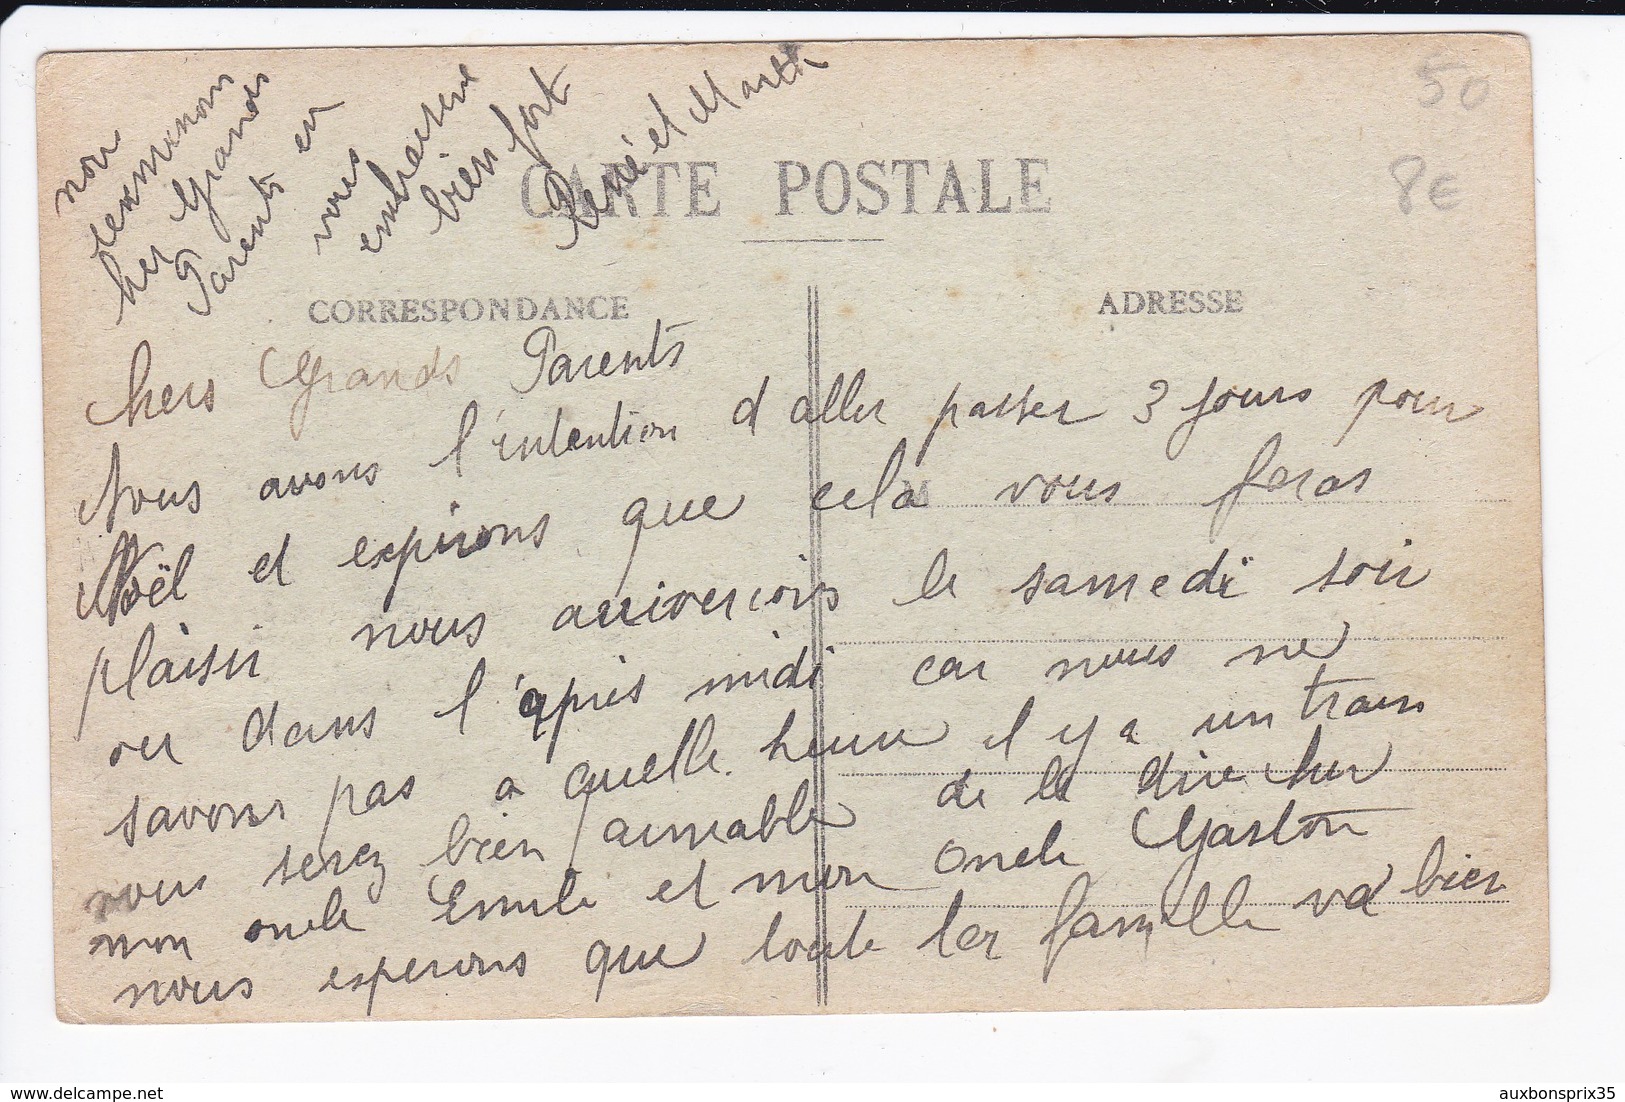 CARTE POSTALE
CORRESPONDANCE
ADRESSE
50
8€
hers Grands Parents
Nous avons l'intention d aller passer 3 jours pour
Noël et expirons que cela vous feras
plaisir nous arriverons le samedi soir
ou dans l'après midi car nous ne
savons pas a quelle heure il y a un train
vous serez bien aimable de le dire her
mon oncle Emile et mon oncle Gaston
nous esperons que toute la famille va bien
nous
terminons
her Grands
Parents en
vous
embrassant
bien fort
René et Marth
delcampe.net
auxbonsprix35